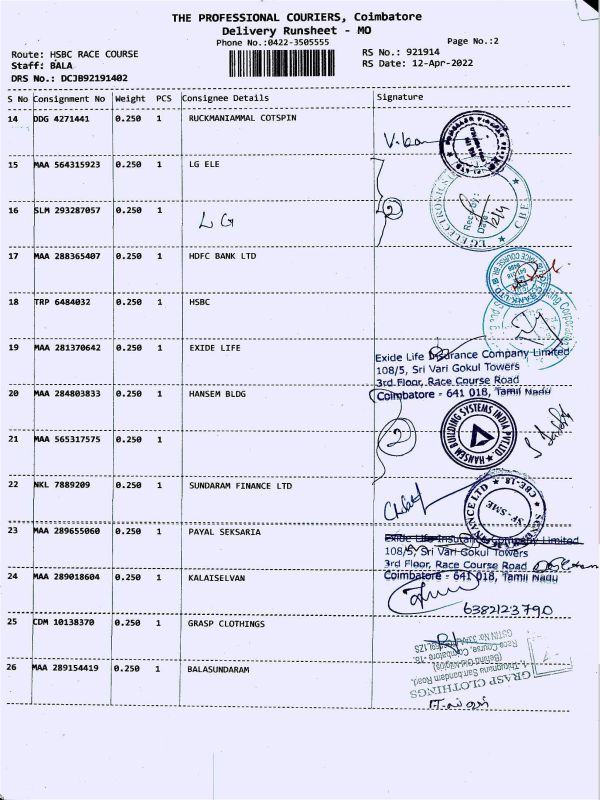 THE PROFESSIONAL COURIERS, Coimbatore
Delivery Runsheet - MO
Phone No.:0422-3505555
Page No.:2
Route: HSBC RACE COURSE
RS No.: 921914
Staff: BALA
RS Date: 12-Apr-2022
DRS No.: DCJB92191402
S No Consignment No Weight PCS Consignee Details Signature
14 DDG 4271441 0.250 1 RUCKMANIAMMAL COTSPIN
15 MAA 564315923 0.250 1 LG ELE
LG ELECTRONICS
CBE
Recd by:
Date: 12/4
2
16 SLM 293287057 0.250 1 LG
17 MAA 288365407 0.250 1 HDFC BANK LTD
18 TRP 6484032 0.250 1 HSBC
19 MAA 281370642 0.250 1 EXIDE LIFE
Exide Life Insurance Company Limited
108/5, Sri Vari Gokul Towers
3rd Floor, Race Course Road
Coimbatore - 641 018, Tamil Nadu
20 MAA 284803833 0.250 1 HANSEM BLDG
HANSEM BUILDING SYSTEMS INDIA PVT.LTD.
2
21 MAA 565317575 0.250 1
22 NKL 7889209 0.250 1 SUNDARAM FINANCE LTD
CBE-18
SF-SME
23 MAA 289655060 0.250 1 PAYAL SEKSARIA
Exide Life Insurance Company Limited
108/5, Sri Vari Gokul Towers
3rd Floor, Race Course Road
Coimbatore - 641 018, Tamil Nadu
24 MAA 289018604 0.250 1 KALAISELVAN
6382123790
25 CDM 10138370 0.250 1 GRASP CLOTHINGS
26 MAA 289154419 0.250 1 BALASUNDARAM
GRASP CLOTHINGS
Race Course, Coimbatore -18.